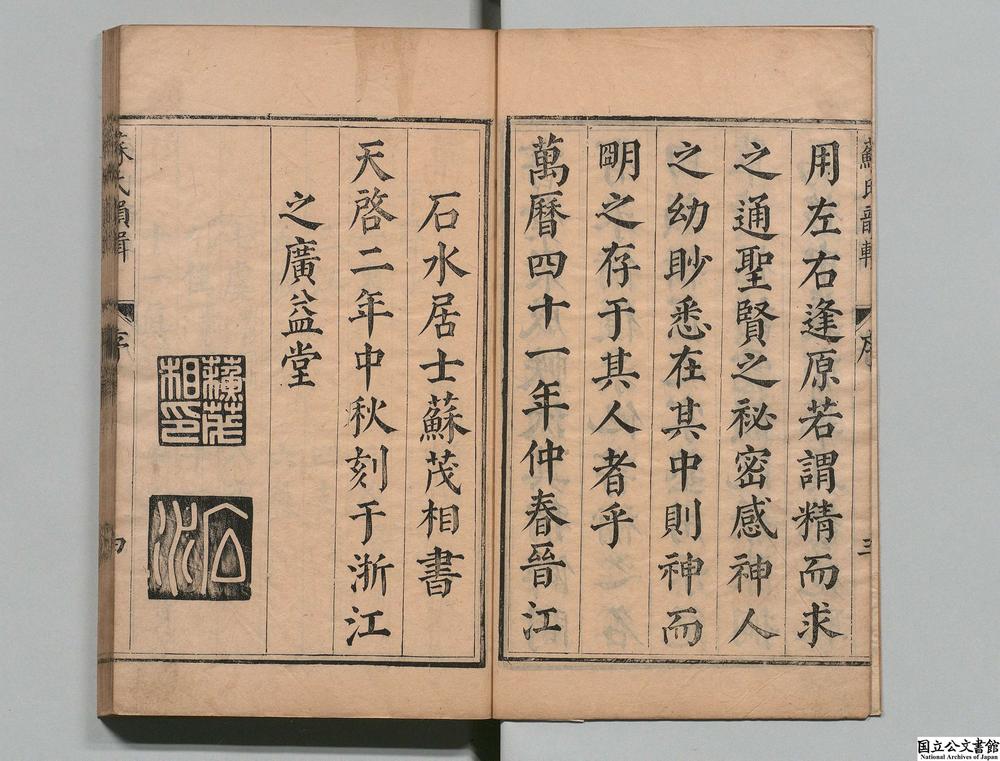 用左右逢原若謂精而求
之通聖賢之祕密感神人
之幼眇悉在其中則神而
朙之存于其人者乎
萬曆四十一年仲春晉江
石水居士蘇茂相書
天啓二年中秋刻于浙江
之廣益堂
蘇茂相印
石水
蘇氏韻輯
序
三
蘇氏韻輯
序
四
国立公文書館
National Archives of Japan